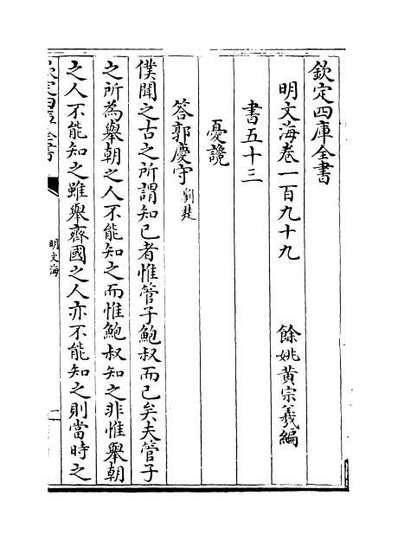 欽定四庫全書
明文海卷一百九十九
餘姚黃宗羲編
書五十三
憂讒
答郭慶守 劉楚
僕聞之古之所謂知己者惟管子鮑叔而已矣夫管子
之所為舉朝之人不能知之而惟鮑叔知之非惟舉朝
之人不能知之雖舉齊國之人亦不能知之則當時之
欽定四庫全書
明文海
一